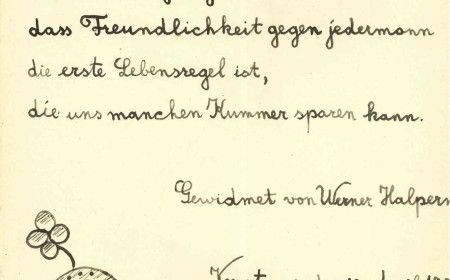 dass Freundlichkeit gegen jedermann
die erste Lebensregel ist,
die uns manchen Kummer sparen kann.
Gewidmet von Werner Halpern